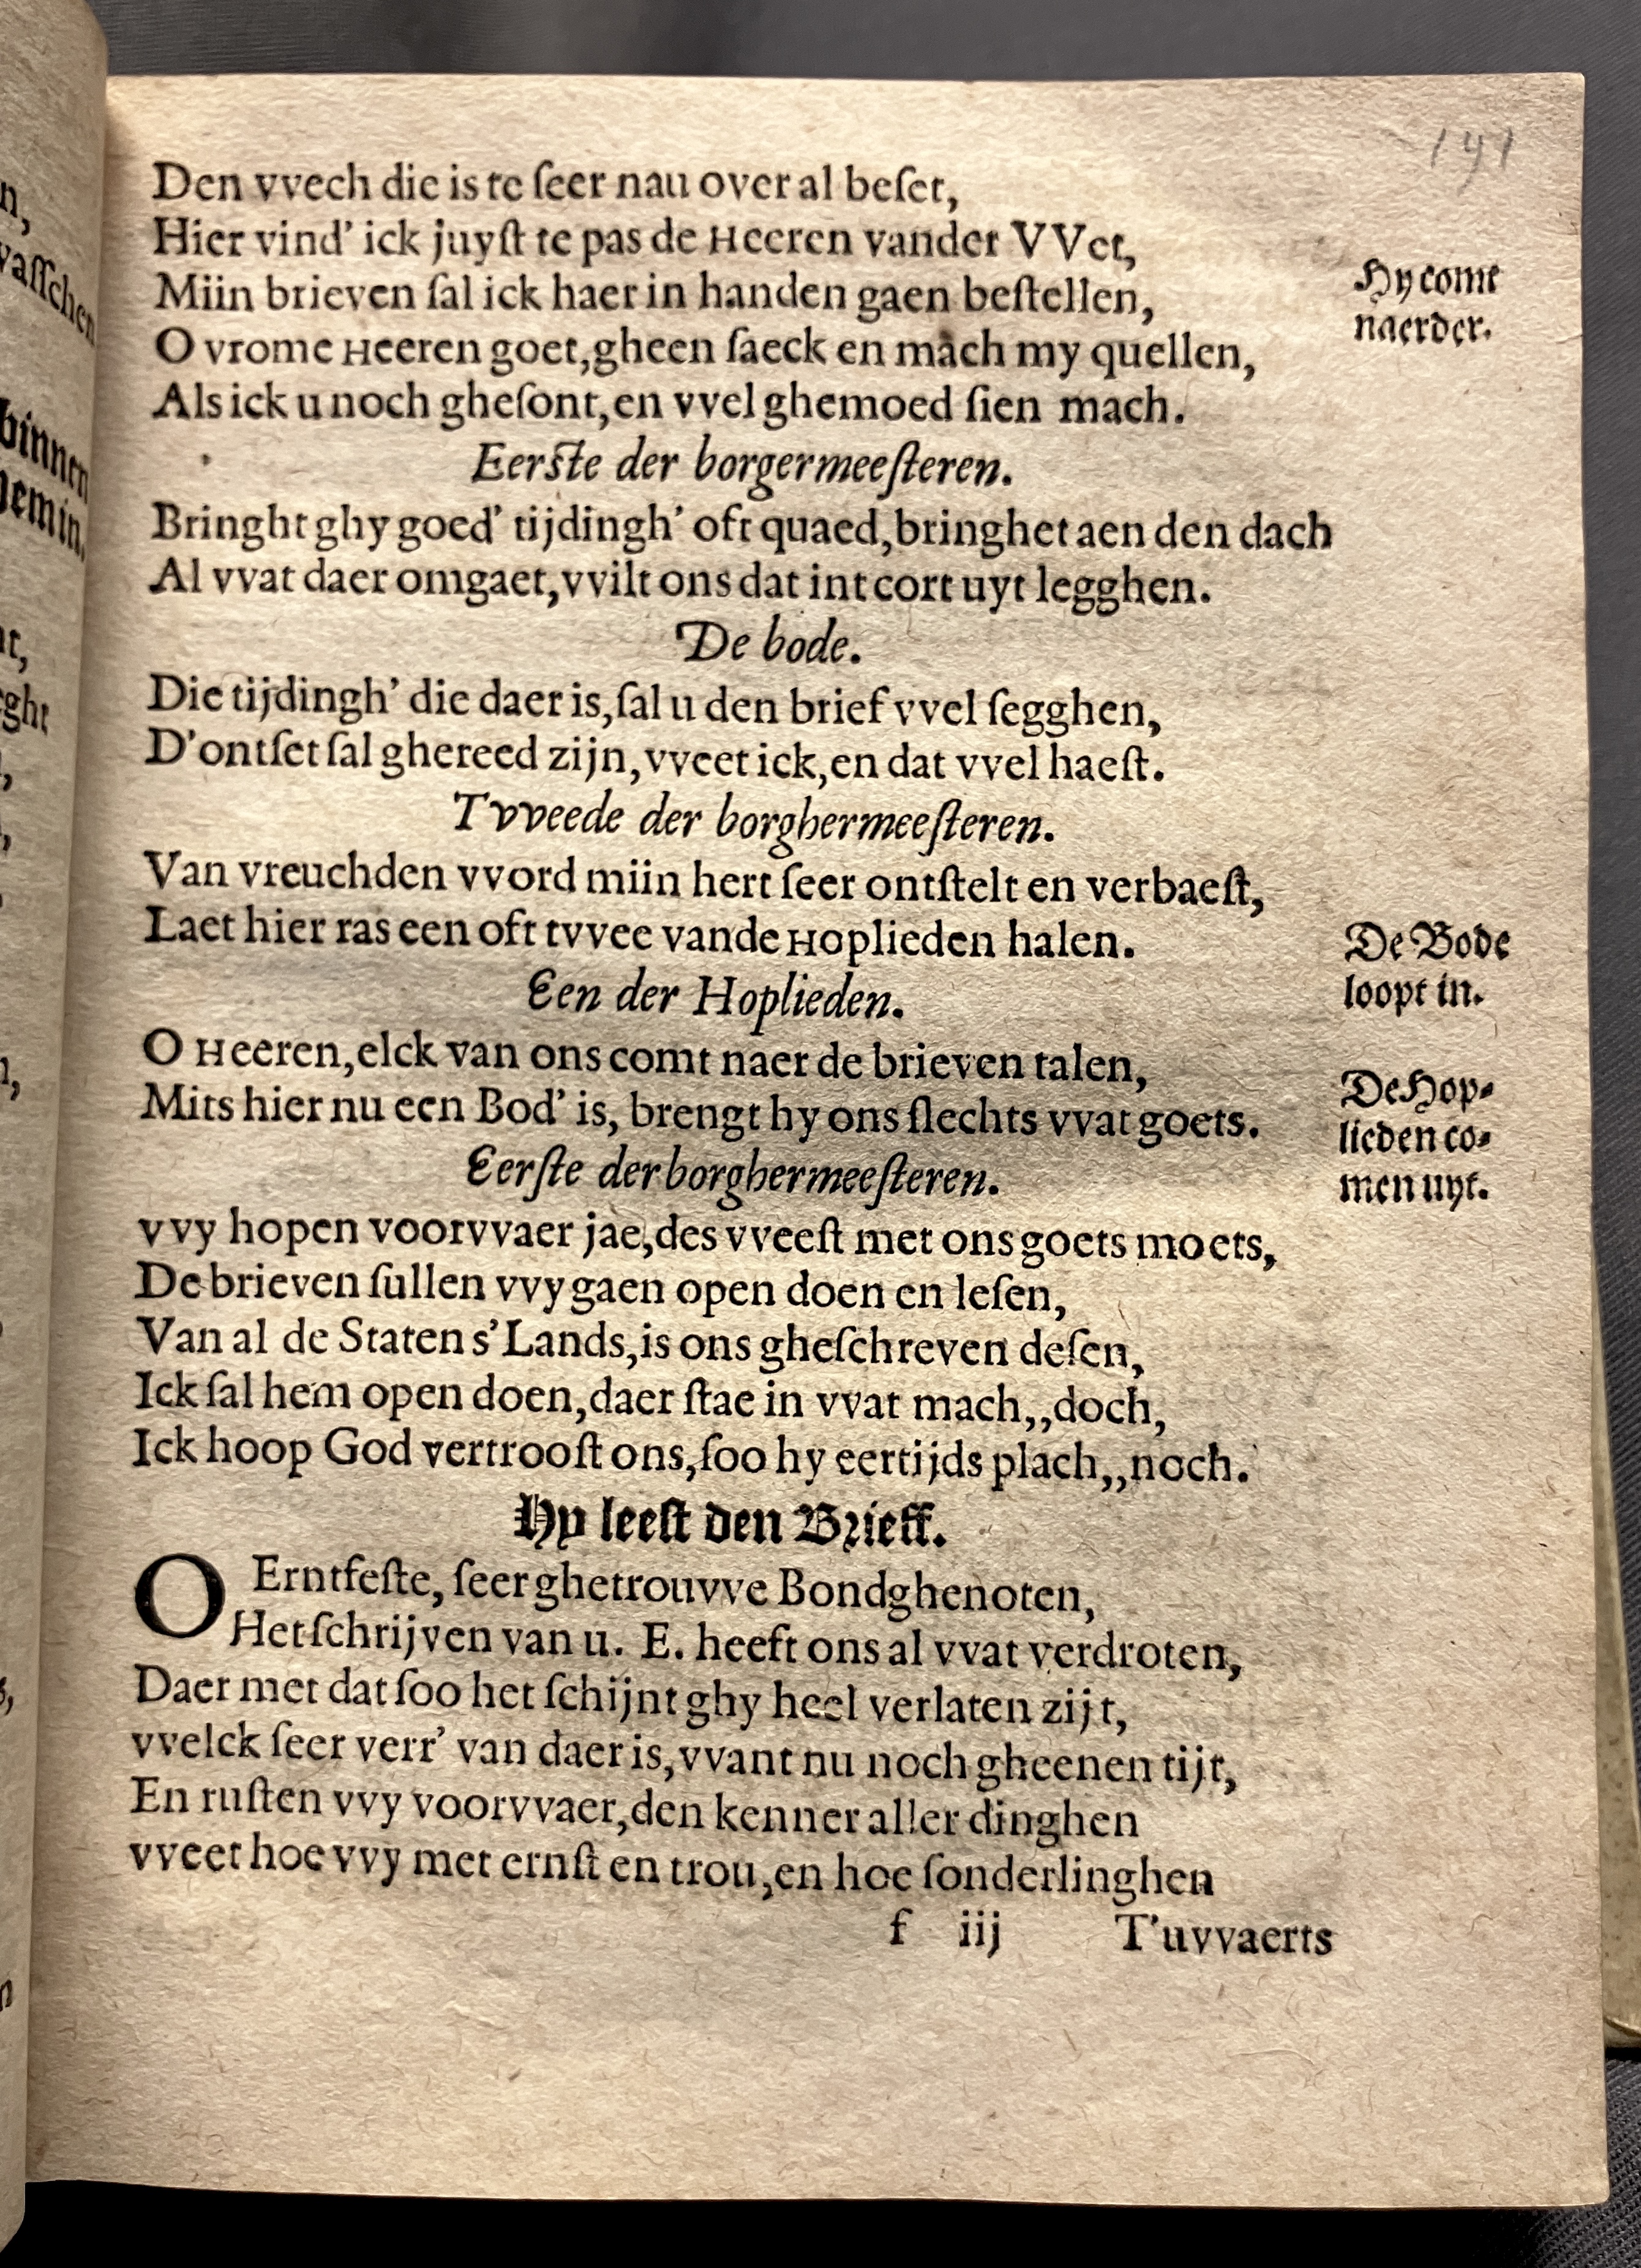 191
Den vvech die is te ſeer nau over al beſet,
Hier vind' ick juyſt te pas de Heeren vander VVet,
Miin brieven ſal ick haer in handen gaen beſtellen,
Hy comt
naerder.
O vrome Heeren goet, gheen ſaeck en mach my quellen,
Als ick u noch gheſont, en vvel ghemoed ſien mach.
Eerſte der borgermeeſteren.
Bringht ghy goed' tijdingh' oft quaed, bringhet aen den dach
Al vvat daer omgaet, vvilt ons dat int cort uyt legghen.
De bode.
Die tijdingh' die daer is, ſal u den brief vvel ſegghen,
D'ontſet ſal ghereed zijn, vveet ick, en dat vvel haeſt.
Tvveede der borghermeeſteren.
Van vreuchden vvord miin hert ſeer ontſtelt en verbaeſt,
Laet hier ras een oft tvvee vande Hoplieden halen.
De Bode
loopt in.
Een der Hoplieden.
O Heeren, elck van ons comt naer de brieven talen,
Mits hier nu een Bod' is, brengt hy ons ſlechts vvat goets.
De Hop⸗
lieden co⸗
men uyt.
Eerſte der borghermeeſteren.
vvy hopen voorvvaer jae, des vveeſt met ons goets moets,
De brieven ſullen vvy gaen open doen en leſen,
Van al de Staten s'Lands, is ons gheſchreven deſen,
Ick ſal hem open doen, daer ſtae in vvat mach,,doch,
Ick hoop God vertrooſt ons, ſoo hy eertijds plach,,noch.
Hy leeſt den Brieff.
O Erntfeſte, ſeer ghetrouvve Bondghenoten,
Het ſchrijven van u. E. heeft ons al vvat verdroten,
Daer met dat ſoo het ſchijnt ghy heel verlaten zijt,
vvelck ſeer verr' van daer is, vvant nu noch gheenen tijt,
En ruſten vvy voorvvaer, den kenner aller dinghen
vveet hoe vvy met ernſt en trou, en hoe ſonderlinghen
f iij T'uvvaerts